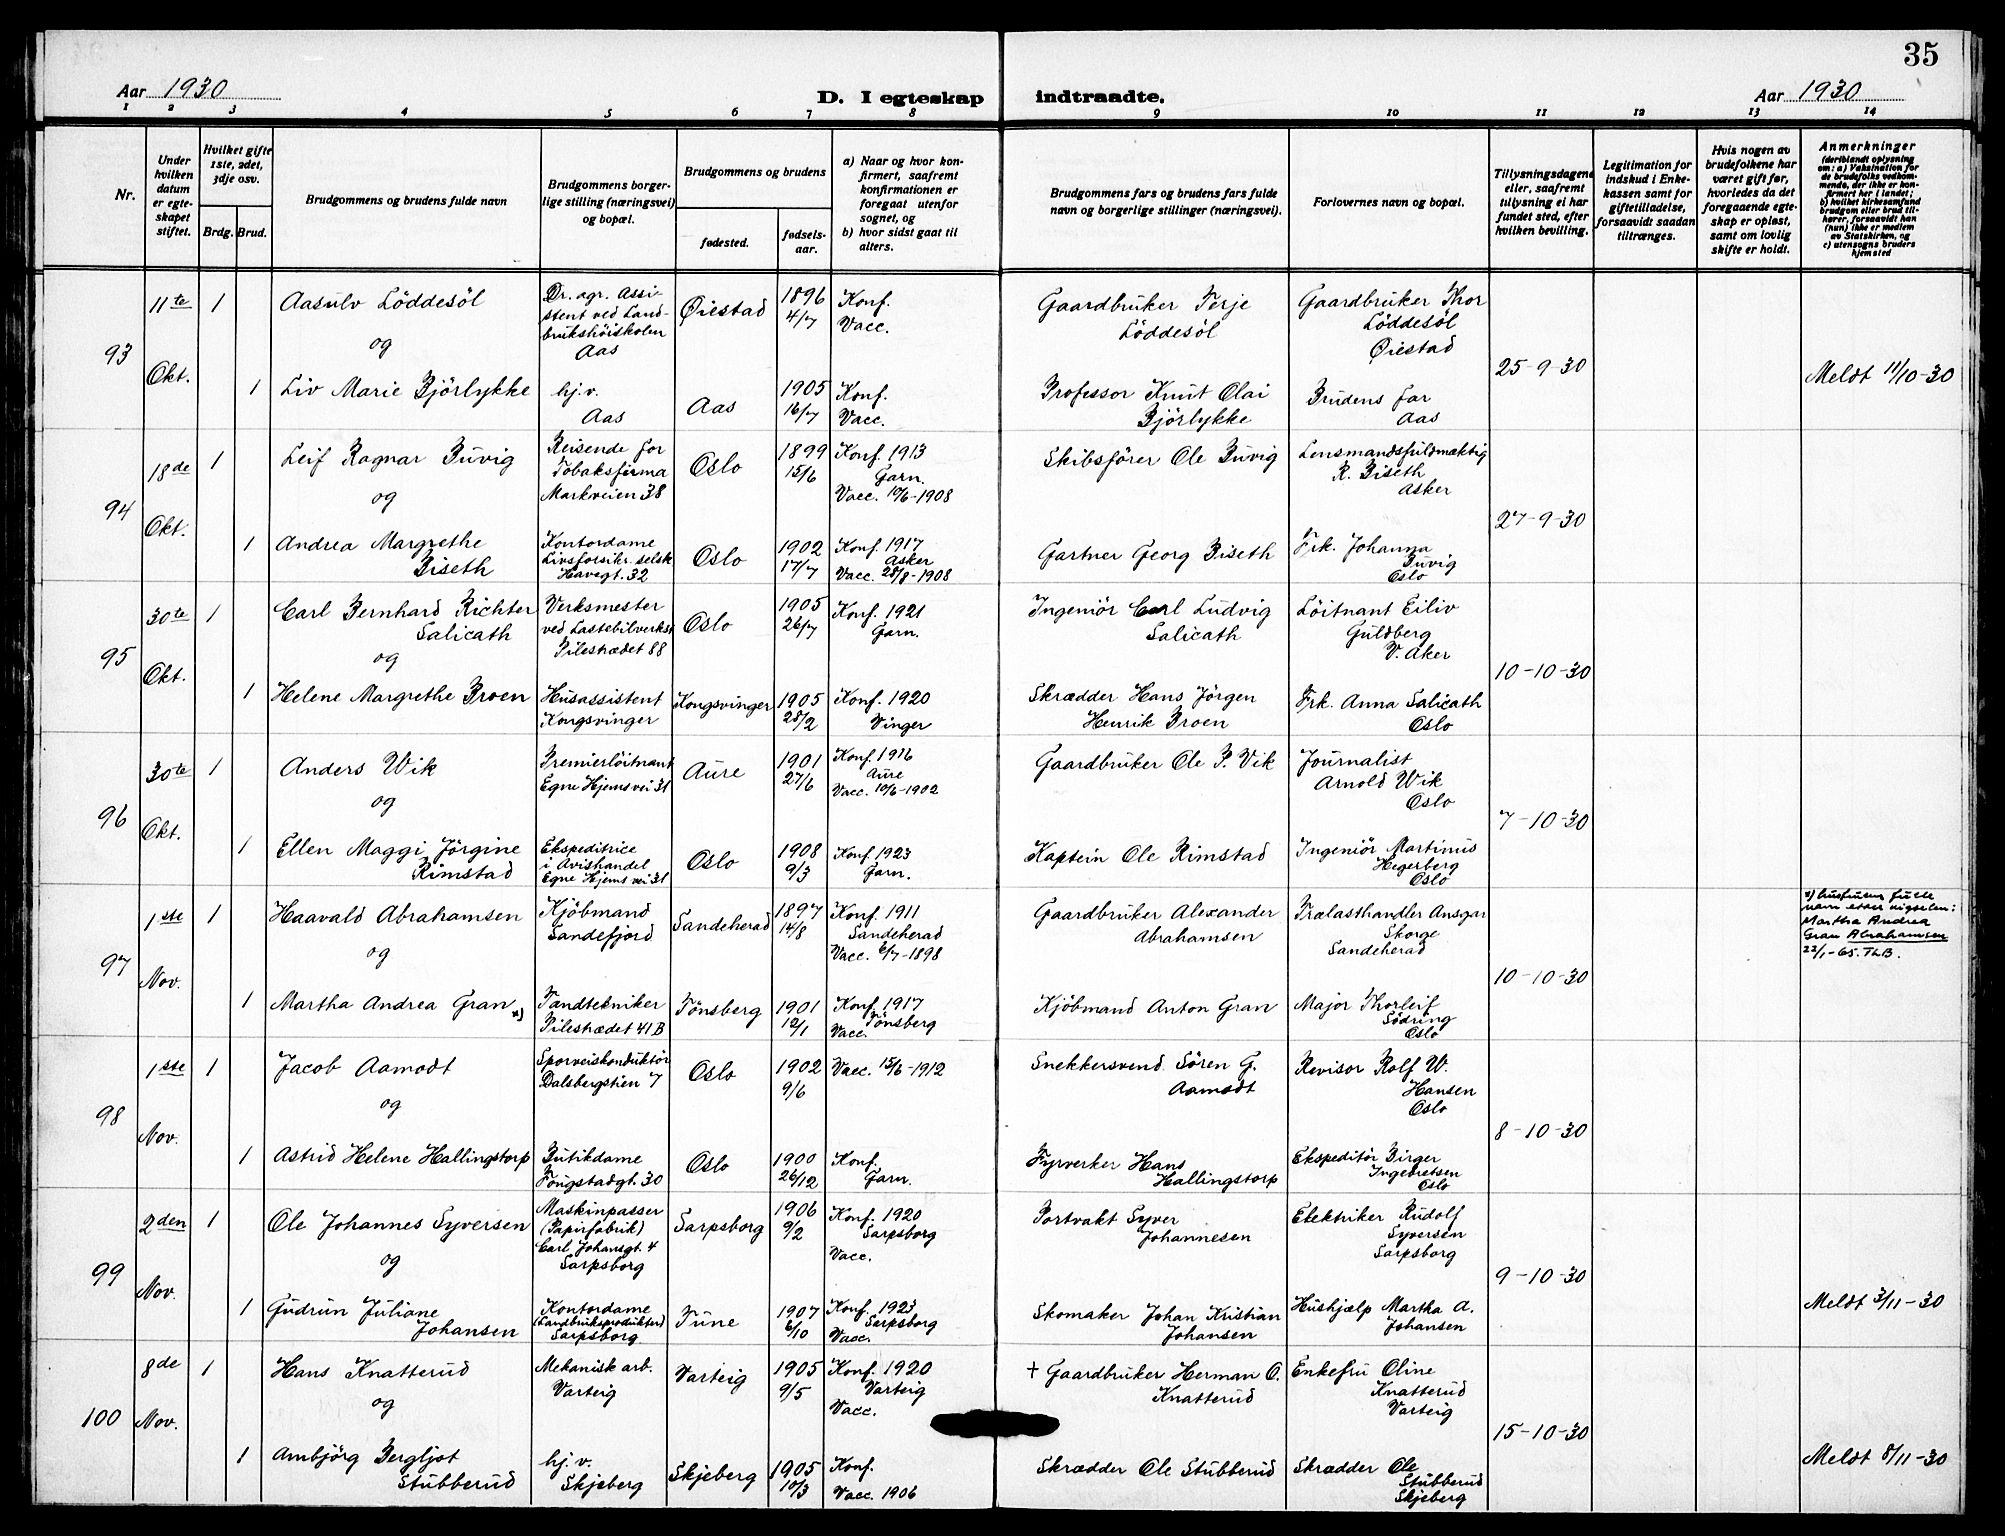 35
Aar 1930
D. I egteskap indtraadte.
Aar 1930
1 2 3 4 5 6 7 8 9 10 11 12 13 14
Nr.
Under hvilken datum er egteskapet stiftet.
Hvilket gifte 1ste, 2det, 3dje osv.
Brdg. Brud.
Brudgommens og brudens fulde navn
Brudgommens borgerlige stilling (næringsvei) og bopæl.
Brudgommens og brudens
fødested.
fødselsaar.
a) Naar og hvor konfirmert, saafremt konfirmationen er foregaat utenfor sognet, og
b) hvor sidst gaat til alters.
Brudgommens fars og brudens fars fulde navn og borgerlige stillinger (næringsvei).
Forlovernes navn og bopæl.
Tillysningsdagene eller, saafremt tillysning ei har fundet sted, efter hvilken bevilling.
Legitimation for indskud i Enkekassen samt for giftetilladelse, forsaavidt saadan tiltrænges.
Hvis nogen av brudefolkene har været gift før, hvorledes da det foregaaende egteskap er opløst, samt om lovlig skifte er holdt.
Anmerkninger
(deriblandt oplysning om: a) Vaksination for de brudefolks vedkommende, der ikke er konfirmert her i landet; b) hvilket kirkesamfund brudgom eller brud tilhører, forsaavidt han (hun) ikke er medlem av Statskirken, og c) utensogns bruders hjemsted
93
11te Okt.
1 Aasulv Löddesöl
Dr. agr. Assistent ved Landbrukshöiskolen Aas
Øiestad
1896 4/7
Konf. Vacc.
Gaardbruker Terje Löddesöl
Gaardbruker Thor Löddesöl Øiestad
og
25-9-30
Meldt 11/10-30
1 Liv Marie Björlykke
hj.v. Aas
Aas
1905 16/7
Konf. Vacc.
Professor Knut Olai Björlykke
Brudens far Aas
94
18de Okt.
1 Leif Ragnar Buvig
Reisende for Tobaksfirma Markveien 38
Oslo
1899 15/6
Konf. 1913 Garn. Vacc. 10/6-1908
Skibsförer Ole Buvig
Lensmandsfuldmæktig R. Biseth Asker
og
27-9-30
1 Andrea Margrethe Biseth
Kontordame Livsforsikr. selsk Havegt. 32
Oslo
1902 17/7
Konf. 1917 Asker Vacc. 28/8-1908
Gartner Georg Biseth
Frk. Johanna Buvig Oslo
95
30te Okt.
1 Carl Bernhard Richter Salicath
Verksmester ved Lastebilverkst Pilestrædet 88
Oslo
1905 26/7
Konf. 1921 Garn.
Ingeniör Carl Ludvig Salicath
Löitnant Eiliv Guldberg V. Aker
og
10-10-30
1 Helene Margrethe Broen
Husassistent Kongsvinger
Kongsvinger
1905 28/2
Konf. 1920 Vinger
Skrædder Hans Jörgen Henrik Broen
Frk. Anna Salicath Oslo
96
30te Okt.
1 Anders Wik
Premierlöitnant Egne Hjemsvei 31
Aure
1901 27/6
Konf. 1916 Aure Vacc. 10/6-1902
Gaardbruker Ole P. Vik
Journalist Arnold Wik Oslo
og
7-10-30
1 Ellen Maggi Jörgine Rimstad
Ekspeditrice i Avishandel Egne Hjems vei 31
Oslo
1908 9/3
Konf. 1923 Garn.
Kaptein Ole Rimstad
Ingeniör Martinus Hegerberg Oslo
97
1ste Nov.
1 Haavald Abrahamsen
Kjöbmand Sandefjord
Sandeherad
1897 14/8
Konf. 1911 Sandeherad Vacc. 6/7-1898
Gaardbruker Alexander Abrahamsen
Trælasthandler Ansgar Skorge Sandeherad
x) hustruens fulle navn etter vigselen: Martha Andrea Gran Abrahamsen 22/1-65. ThB.
og
10-10-30
1 Martha Andrea Gran x)
Tandtekniker Pilestrædet 41B
Tönsberg
1901 12/1
Konf. 1917 Tönsberg Vacc.
Kjöbmand Anton Gran
Major Thorleif Södring Oslo
98
1ste Nov.
1 Jacob Aamodt
Sporveiskonduktör Dalsbergstien 7
Oslo
1902 9/6
Vacc. 15/6-1912
Snekkersvend Sören G. Aamodt
Revisor Rolf W. Hansen Oslo
og
8-10-30
1 Astrid Helene Hallingstorp
Butikdame Föngstadgt. 30
Oslo
1900 26/12
Konf. Garn.
Fyrverker Hans Hallingstorp
Ekspeditör Birger Ingebretsen Oslo
99
2den Nov.
1 Ole Johannes Syversen
Maskinpasser (Papirfabrik) Carl Johansgt. 4 Sarpsborg
Sarpsborg
1906 9/2
Konf. 1920 Sarpsborg Vacc.
Portvakt Syver Johannesen
Elektriker Rudolf Syversen Sarpsborg
og
9-10-30
Meldt 3/11-30
1 Gudrun Juliane Johansen
Kontordame (Landbruksprodukter) Sarpsborg
Tune
1907 6/10
Konf. 1923 Sarpsborg Vacc.
Skomaker Johan Kristian Johansen
Hushjælp Martha A. Johansen
100
8de Nov.
1 Hans Knatterud
Mekanisk arb. Varteig
Varteig
1905 9/5
Konf. 1920 Varteig Vacc.
+ Gaardbruker Herman O. Knatterud
Enkefru Oline Knatterud Varteig
og
15-10-30
Meldt 8/11-30
1 Ambjörg Bergljot Stubberud
hj.v. Skjeberg
Skjeberg
1905 10/3
Konf. Vacc. 1906
Skrædder Ole Stubberud
Skrædder Ole Stubberud Skjeberg